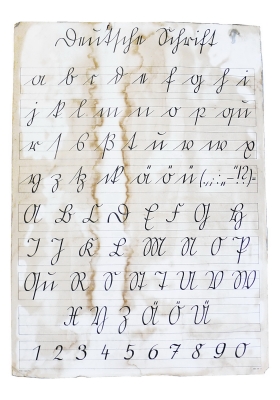 Deutsche Schrift
a b c d e f g h i
j k l m n o p qu
r ſ s ß t u v w x
y z tz ck ä ö ü (.,:;-„“!?)=
A B C D E F G H
I J K L M N O P
Qu R S St T U V W
X Y Z Ä Ö Ü
1 2 3 4 5 6 7 8 9 0